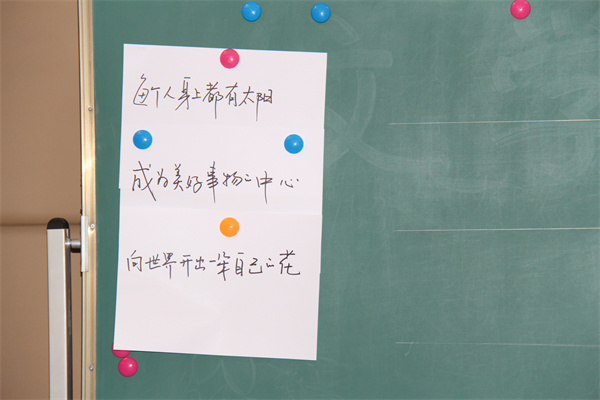 每个人身上都有太阳
成为美好事物之中心
向世界开出一朵自己之花